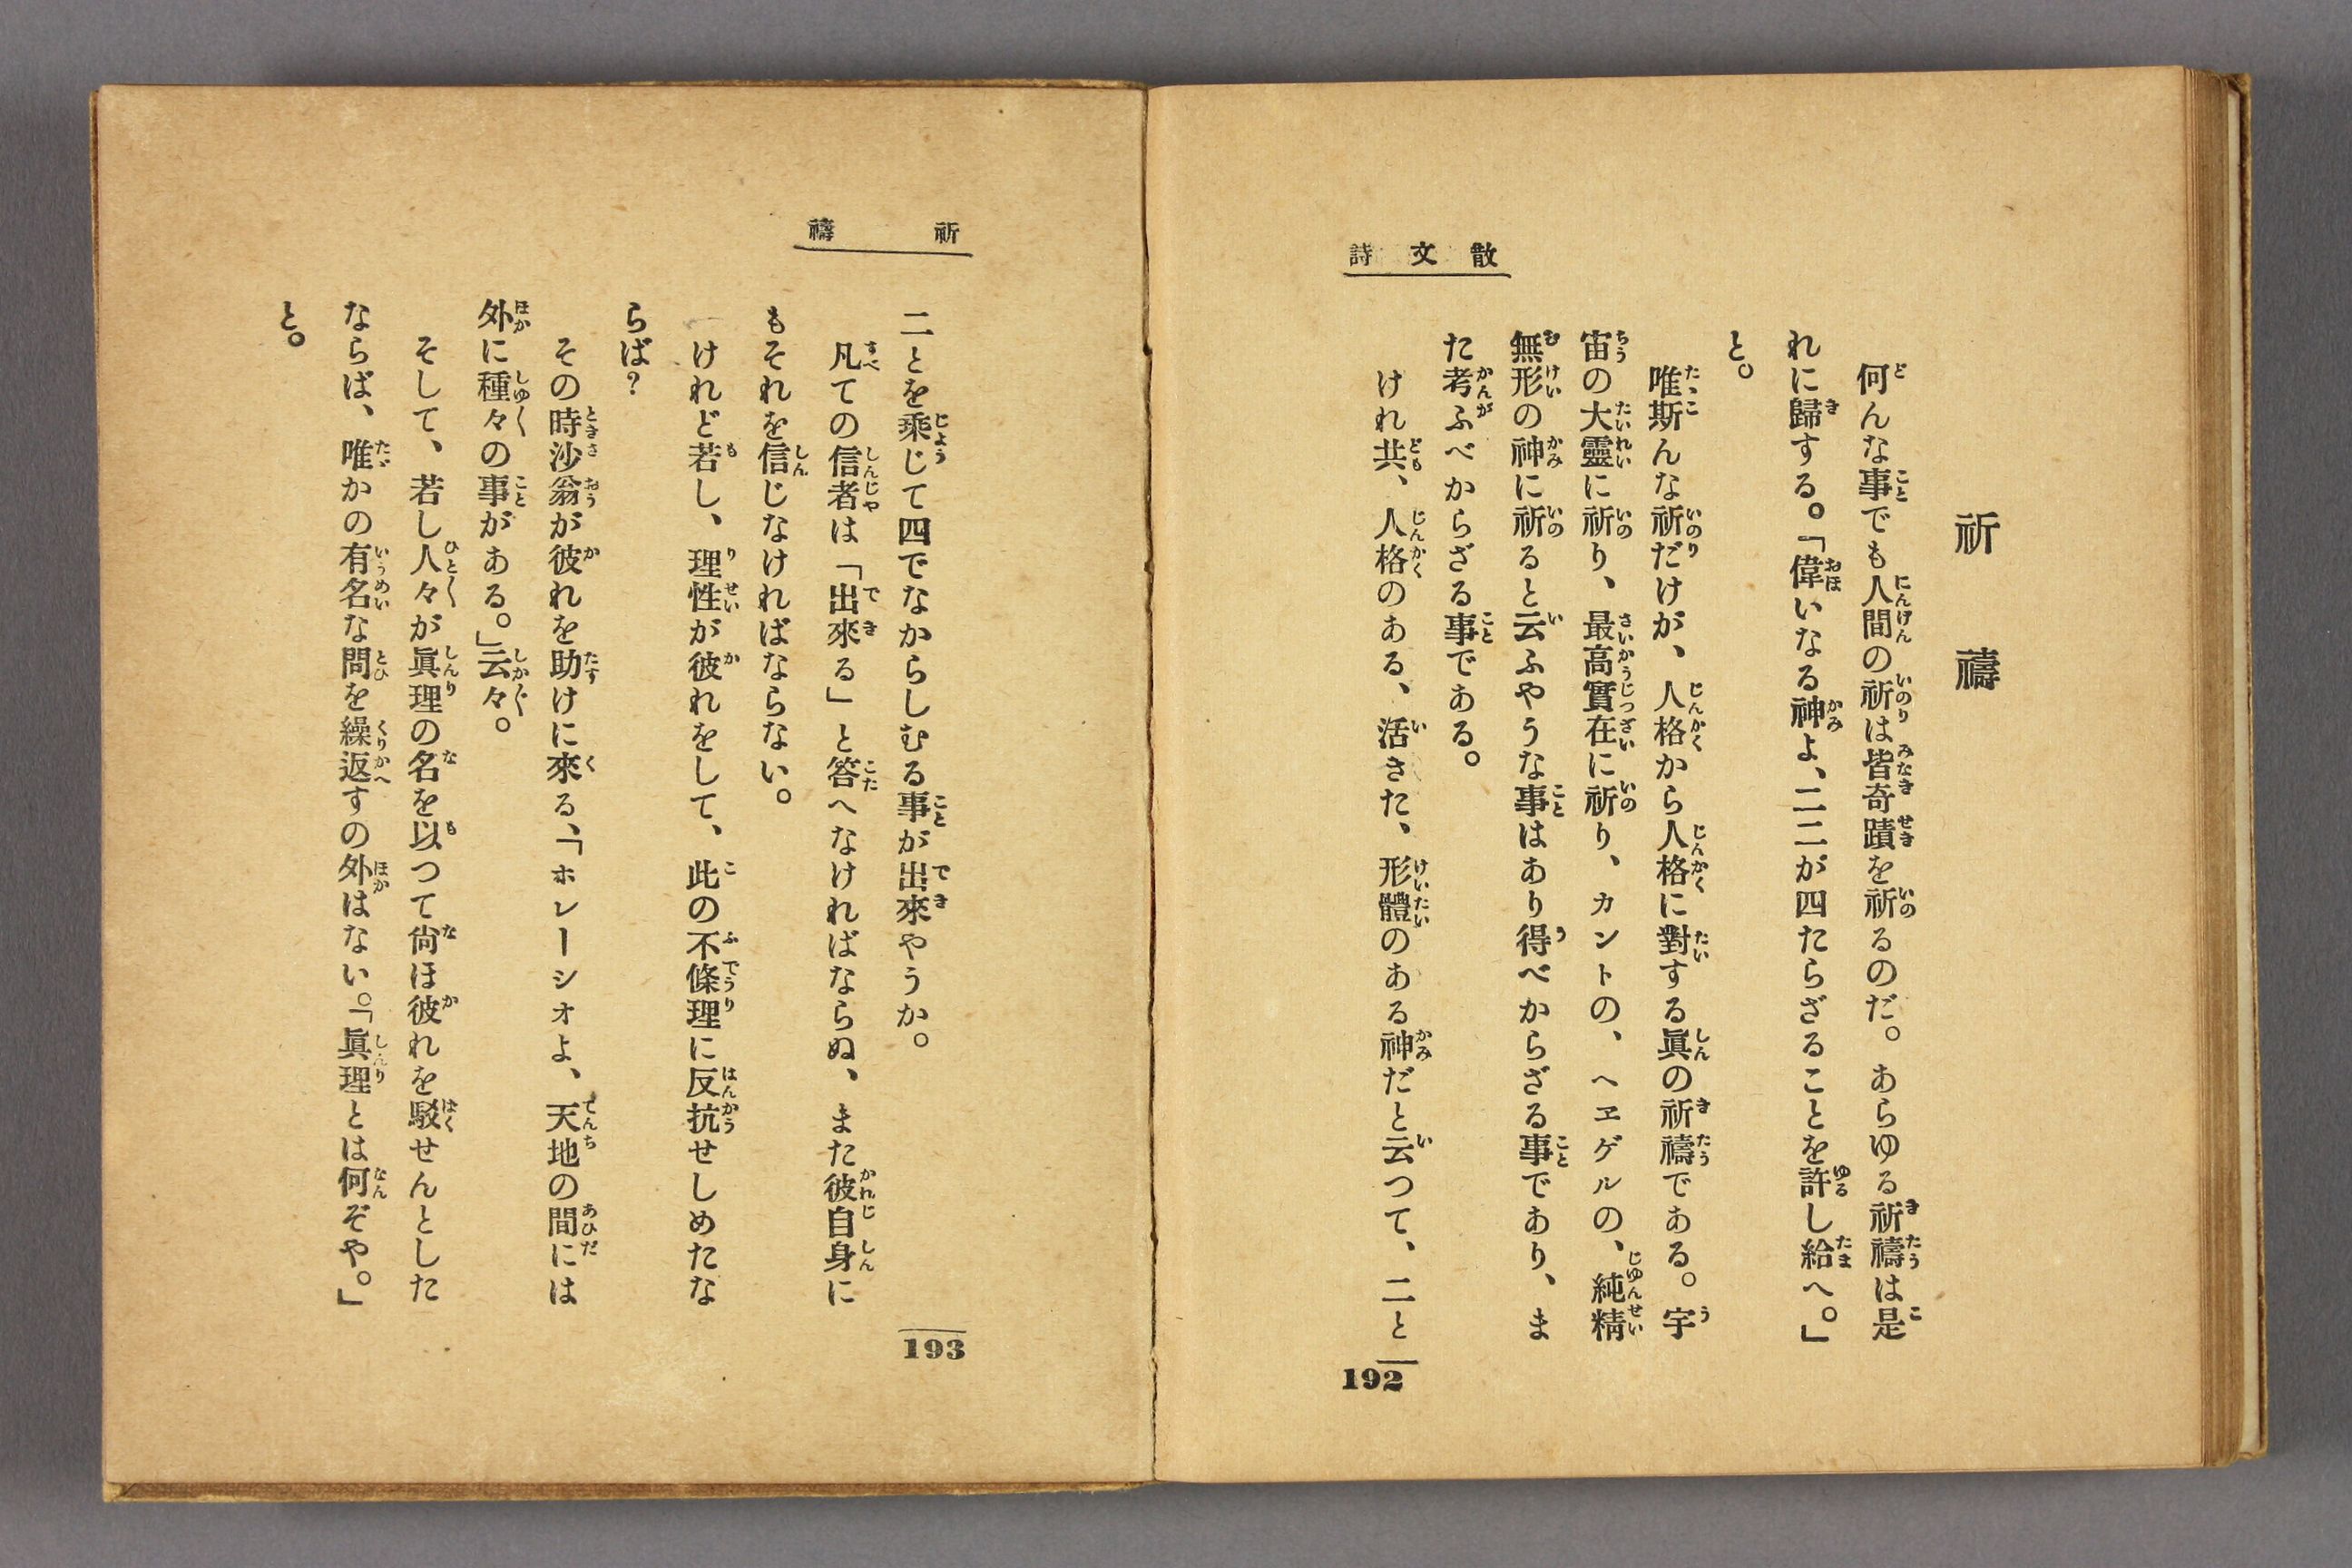 散文詩
祈禱
何んな事でも人間の祈は皆奇蹟を祈るのだ。あらゆる祈禱は是
れに歸する。「偉いなる神よ、二二が四たらざることを許し給へ。」
と。
唯斯んな祈だけが、人格から人格に對する眞の祈禱である。宇
宙の大靈に祈り、最高實在に祈り、カントの、ヘエゲルの、純精
無形の神に祈ると云ふやうな事はあり得べからざる事であり、ま
た考ふべからざる事である。
けれ共、人格のある、活きた、形體のある神だと云つて、二と
192
祈禱
二とを乘じて四でなからしむる事が出來やうか。
凡ての信者は「出來る」と答へなければならぬ、また彼自身に
もそれを信じなければならない。
けれど若し、理性が彼れをして、此の不條理に反抗せしめたな
らば?
その時沙翁が彼れを助けに來る、「ホレーシオよ、天地の間には
外に種々の事がある。」云々。
そして、若し人々が眞理の名を以つて尙ほ彼れを駁せんとした
ならば、唯かの有名な問を繰返すの外はない。「眞理とは何ぞや。」
と。
193